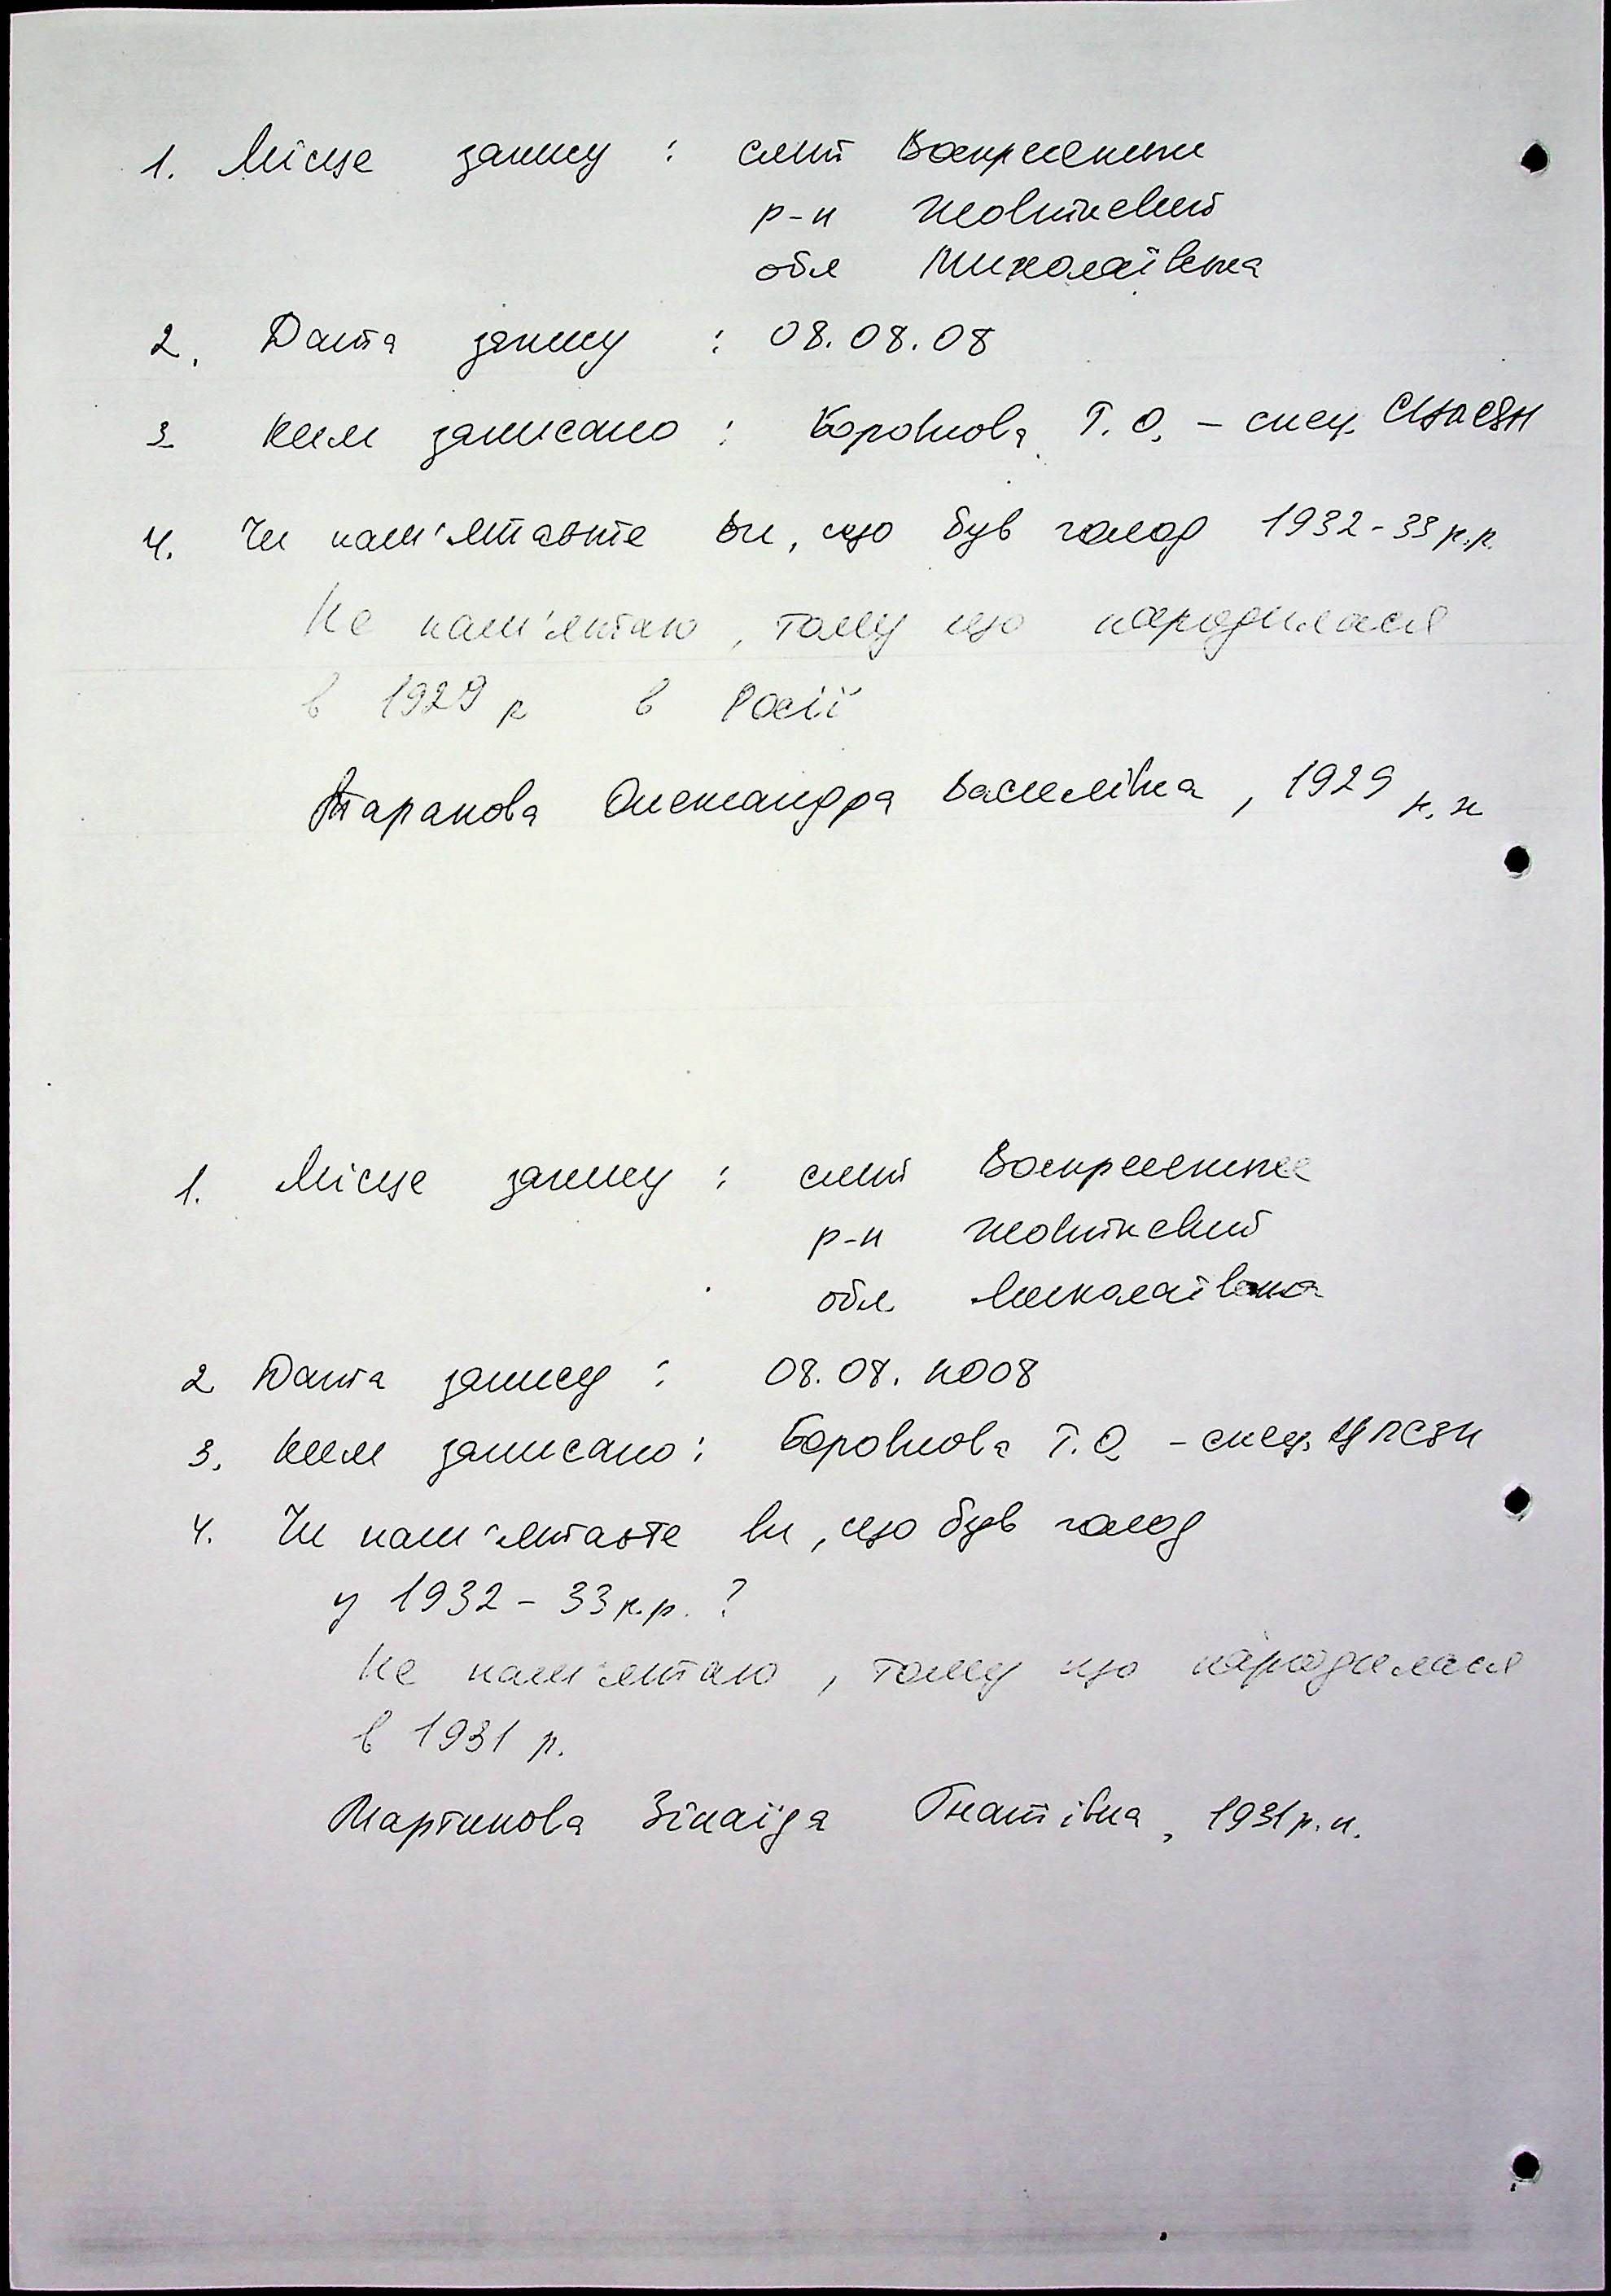 1. Місце запису : смт Воскресенське
р-н Жовтневий
обл Миколаївська
2. Дата запису : 08.08.08
3 Ким записано : Боровкова Т. О. – спец.
4. Чи пам'ятаєте ви, що був голод 1932-33 р.р.
Не пам'ятаю, тому що народилася
в 1929 р в Росії
Таранова Олександра Василівна, 1929 р.н
1. Місце запису : смт Воскресенське
р-н Жовтневий
обл Миколаївська
2 Дата запису : 08.08.2008
3. Ким записано : Боровкова Т.О – спец. ЦПСЗН
4. Чи пам'ятаєте ви, що був голод
у 1932 – 33 р.р. ?
Не пам'ятаю, тому що народилася
в 1931 р.
Мартинова Зінаїда Гнатівна, 1931 р.н.